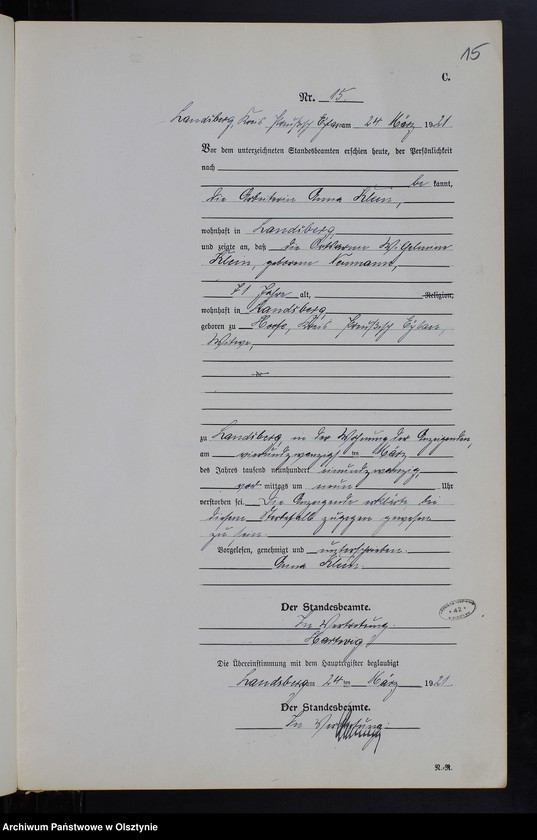 15
C.
Nr. 15
Landsberg, Kreis Preußisch Eylau am 24 März 1921
Vor dem unterzeichneten Standesbeamten erschien heute, der Persönlichkeit
nach
be kannt,
die Arbeiterin Anna Klein,
wohnhaft in Landsberg
und zeigte an, daß die Ortsarme Wilhelmine
Klein, geborene Neumann,
71 Jahre alt, Religion,
wohnhaft in Landsberg
geboren zu Kreis Preußisch Eylau,
Witwe,
zu Landsberg, in der Wohnung der Anzeigenden,
am vierundzwanzigsten März
des Jahres tausend neunhundert einundzwanzig,
vor mittags um neun Uhr
verstorben sei. Die Anzeigende erklärte bei
diesem Sterbefall zugegen gewesen
zu sein.
Vorgelesen, genehmigt und unterschrieben.
Anna Klein.
Der Standesbeamte.
In Vertretung.
Hartwig
42
Die Übereinstimmung mit dem Hauptregister beglaubigt
Landsberg am 24 ten März 1921
Der Standesbeamte.
In Vertretung.
N.-R.
Archiwum Państwowe w Olsztynie